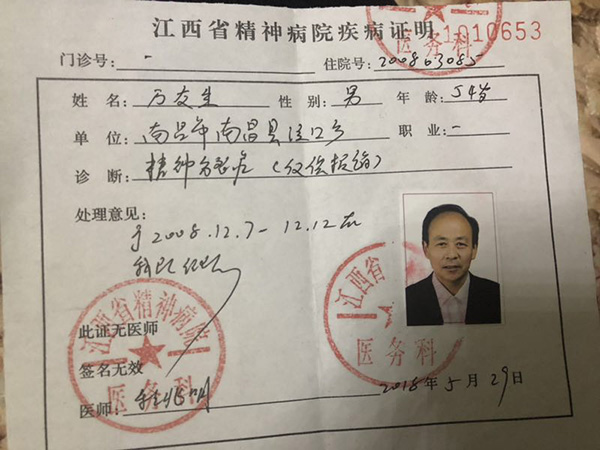 江西省精神病院疾病证明
1010653
门诊号: - 住院号: 200863085
姓名: 万友生 性别: 男 年龄: 54岁
单位: 南昌市南昌县泾口乡 职业: -
诊断: 精神分裂症 (仅供报销)
处理意见:
于2008.12.7-12.12在
我院
此证无医师
签名无效
医师:
2018年5月29日
江西省精神病院
医务科
江西省
医务科
医务科